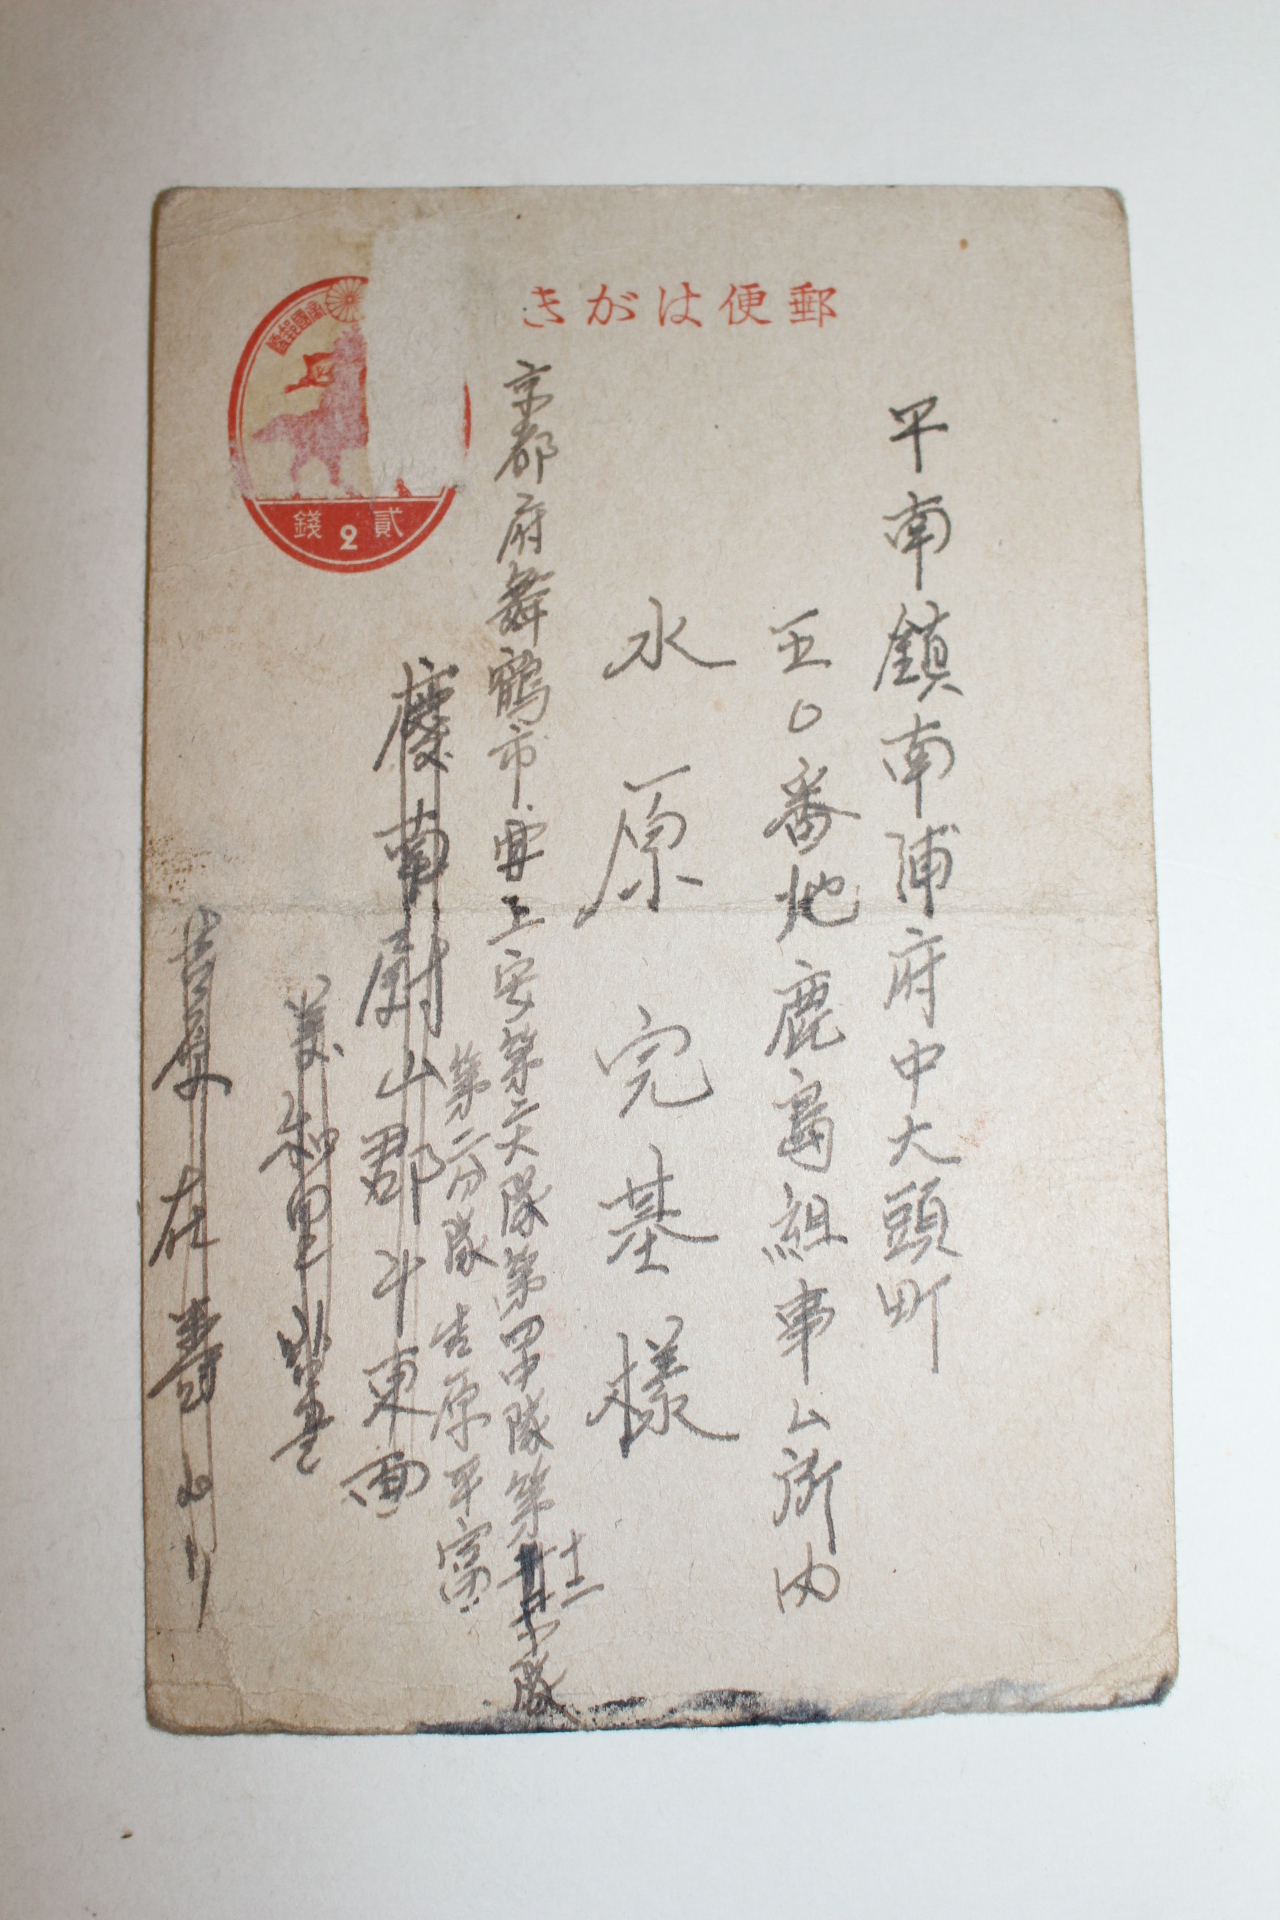 郵便はがき
大日本帝國郵便
貳2錢
平南鎮南浦府中大頭町
五〇番地鹿島組事ム所内
水原完基様
京都府舞鶴市字上安第二大隊第四中隊第
十二
小隊
第二分隊 吉原平富
慶南蔚山郡斗東面
在壽ヨリ